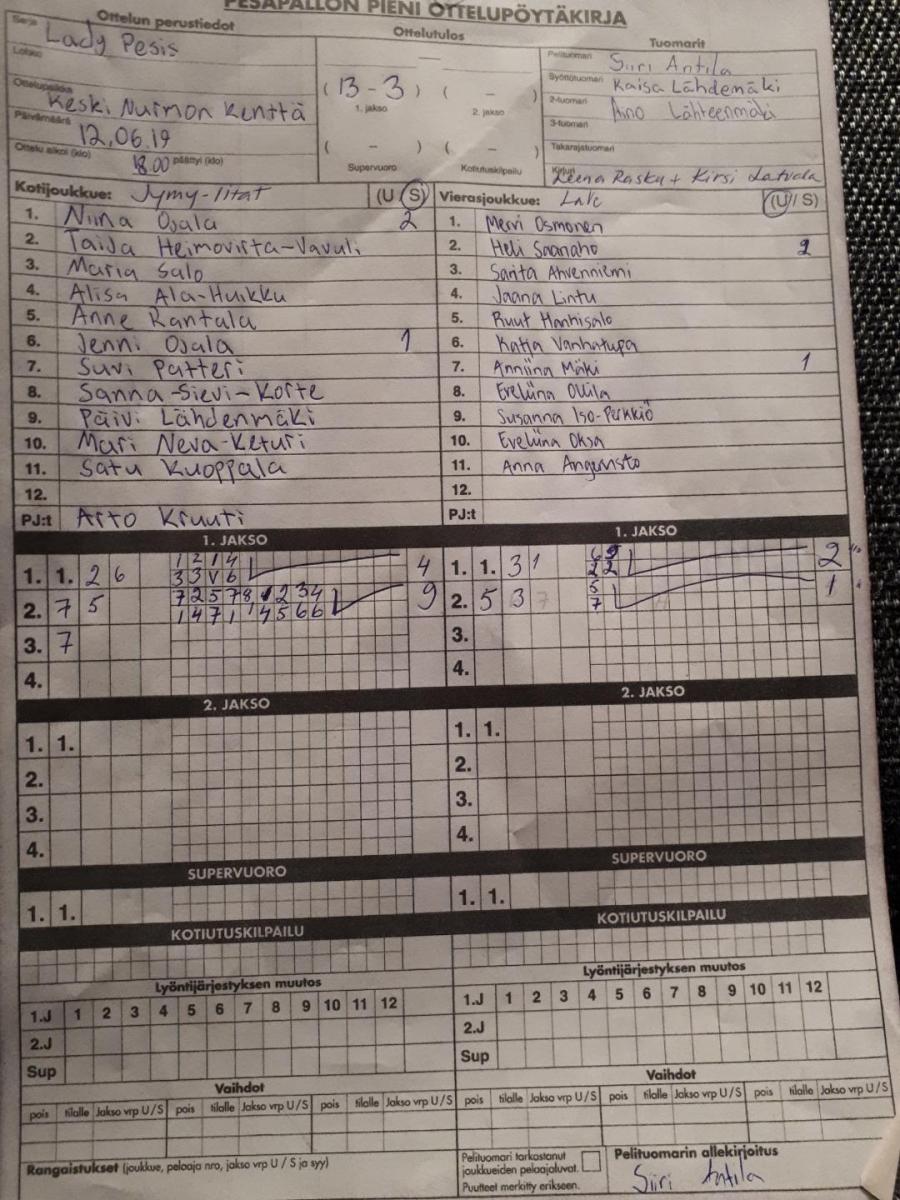 PESÄPALLON PIENI OTTELUPÖYTÄKIRJA
Ottelun perustiedot
Ottelutulos
Tuomarit
Sarja Lady Pesis
Lohko
Ottelupaikka Keski Nurmon Kenttä
Päivämäärä 12.06.19
Ottelu alkoi (klo) 18.00 päättyi (klo)
( 13 - 3 ) ( - )
1. jakso 2. jakso
( - ) ( - )
Supervuoro Kotiutuskilpailu
Pelituomari Siiri Antila
Syöttötuomari Kaisa Lähdemäki
2-tuomari Aino Lähteenmäki
3-tuomari
Takarajatuomari
Kirjuri Leena Rasku + Kirsi Latvala
Kotijoukkue: Jymy-litat (U/S)
1. Niina Ojala 2
2. Taija Heimovirta-Vavuli
3. Maria Salo
4. Alisa Ala-Huikku
5. Anne Rantala
6. Jenni Ojala 1
7. Suvi Patteri
8. Sanna-Sievi-Korte
9. Päivi Lähdenmäki
10. Mari Neva-Keturi
11. Satu Kuoppala
12.
PJ:t Arto Kruuti
Vierasjoukkue: (U/S)
1. Mervi Osmonen
2. Heli Saanaho 2
3. Santa Ahvenniemi
4. Jaana Lintu
5. Ruut Hanhisalo
6. Katja Vanhatupa
7. Anniina Mäki 1
8. Eveliina Ollila
9. Susanna Iso-Perkkiö
10. Eveliina Oksa
11. Anna
12.
PJ:t
1. JAKSO
1. 1. 2 6
1 2 1 4
3 3 V 6
4
2. 7 5
9
3. 7
4.
1. JAKSO
1. 1. 3 1
2 2
2
2. 5 3 7
5
7
1
3.
4.
2. JAKSO
1. 1.
2.
3.
4.
2. JAKSO
1. 1.
2.
3.
4.
SUPERVUORO
1. 1.
SUPERVUORO
1. 1.
KOTIUTUSKILPAILU
KOTIUTUSKILPAILU
Lyöntijärjestyksen muutos
1.J 1 2 3 4 5 6 7 8 9 10 11 12
2.J
Sup
Lyöntijärjestyksen muutos
1.J 1 2 3 4 5 6 7 8 9 10 11 12
2.J
Sup
Vaihdot
pois tilalle Jakso vrp U/S pois tilalle Jakso vrp U/S pois tilalle Jakso vrp U/S
Vaihdot
pois tilalle Jakso vrp U/S pois tilalle Jakso vrp U/S pois tilalle Jakso vrp U/S
Rangaistukset (joukkue, pelaaja nro, jakso vrp U / S ja syy)
Pelituomari tarkastanut
joukkueiden pelaajaluvat.
Puutteet merkitty erikseen.
Pelituomarin allekirjoitus
Siiri Antila